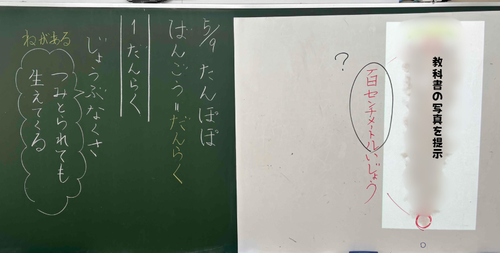 教科書の写真を提示
百センチメートルいじょう
?
5/9 たんぽぽ
ばんごう=だんらく
1だんらく
じょうぶなくさ
つみとられても
生えてくる
ねがある